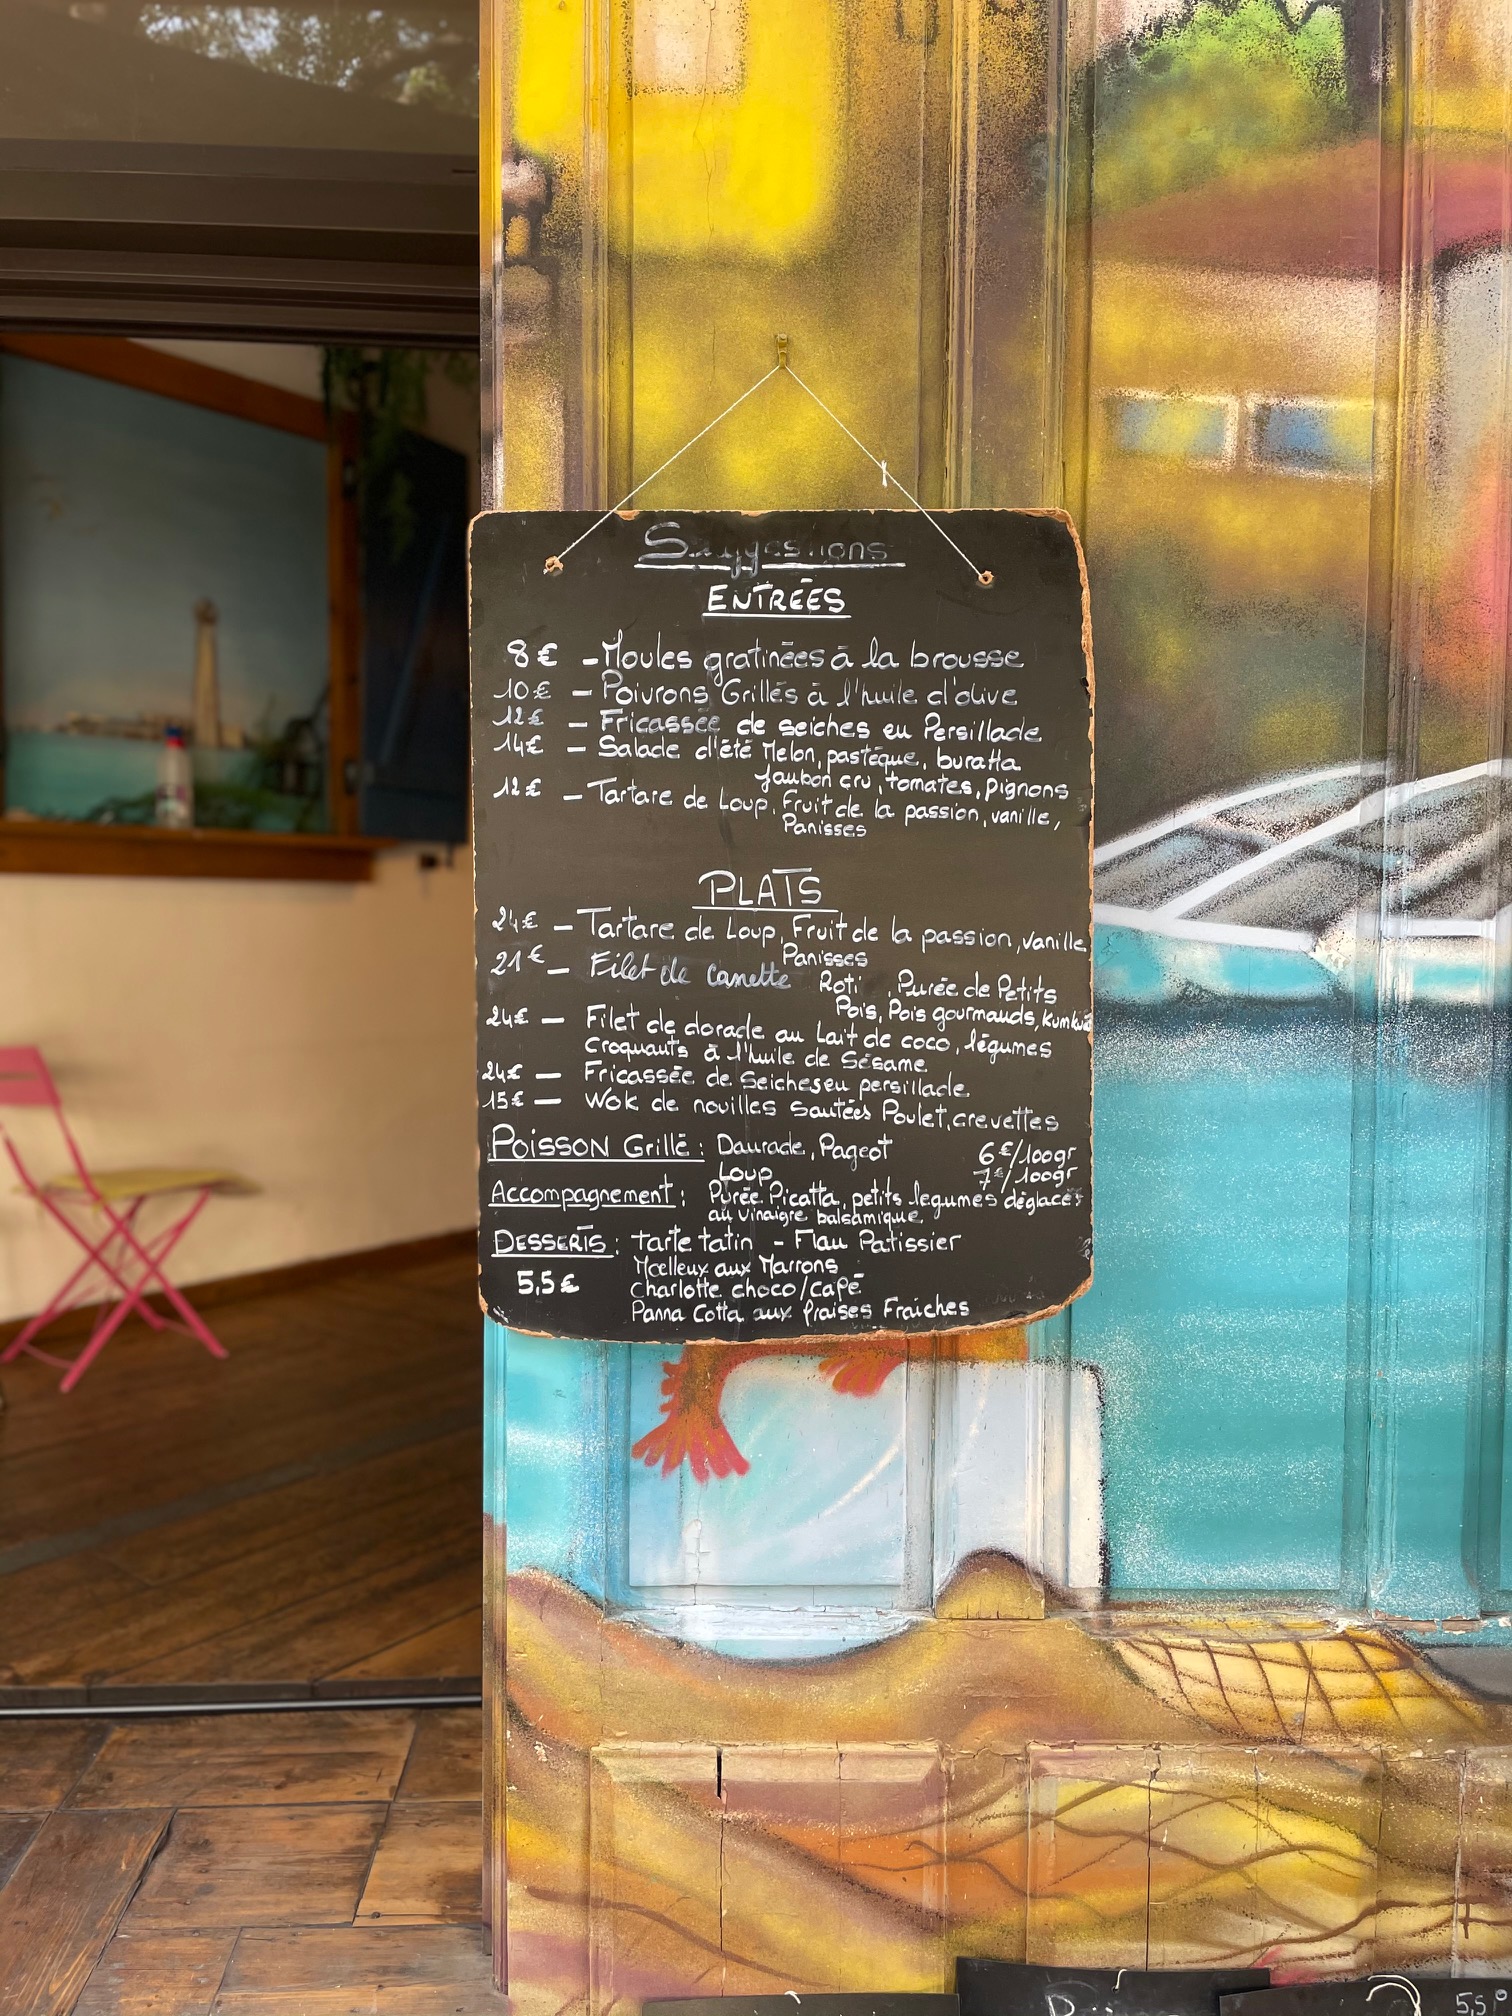 Suggestions
ENTRÉES
8€ - Moules gratinées à la brousse
10€ - Poivrons Grillés à l'huile d'olive
12€ - Fricassée de seiches en Persillade
14€ - Salade d'été Melon, pastèque, buratta
Jambon cru, tomates, pignons
12€ - Tartare de Loup, Fruit de la passion, vanille,
Panisses
PLATS
24€ - Tartare de Loup, Fruit de la passion, vanille
Panisses
21€ - Filet de Canette Roti, Purée de Petits
Pois, Pois gourmands, Kumkuat
24€ - Filet de dorade au Lait de coco, légumes
Croquants à l'huile de Sésame
24€ - Fricassée de Seiches en persillade
15€ - Wok de nouilles sautées Poulet, crevettes
POISSON Grillé : Daurade, Pageot 6€/100gr
Loup 7€/100gr
Accompagnement : Purée Picatta, petits legumes déglacés
au vinaigre balsamique
DESSERTS : tarte tatin - Flan Patissier
5,5€ Moelleux aux Marrons
Charlotte choco/café
Panna Cotta aux fraises Fraiches
5,5